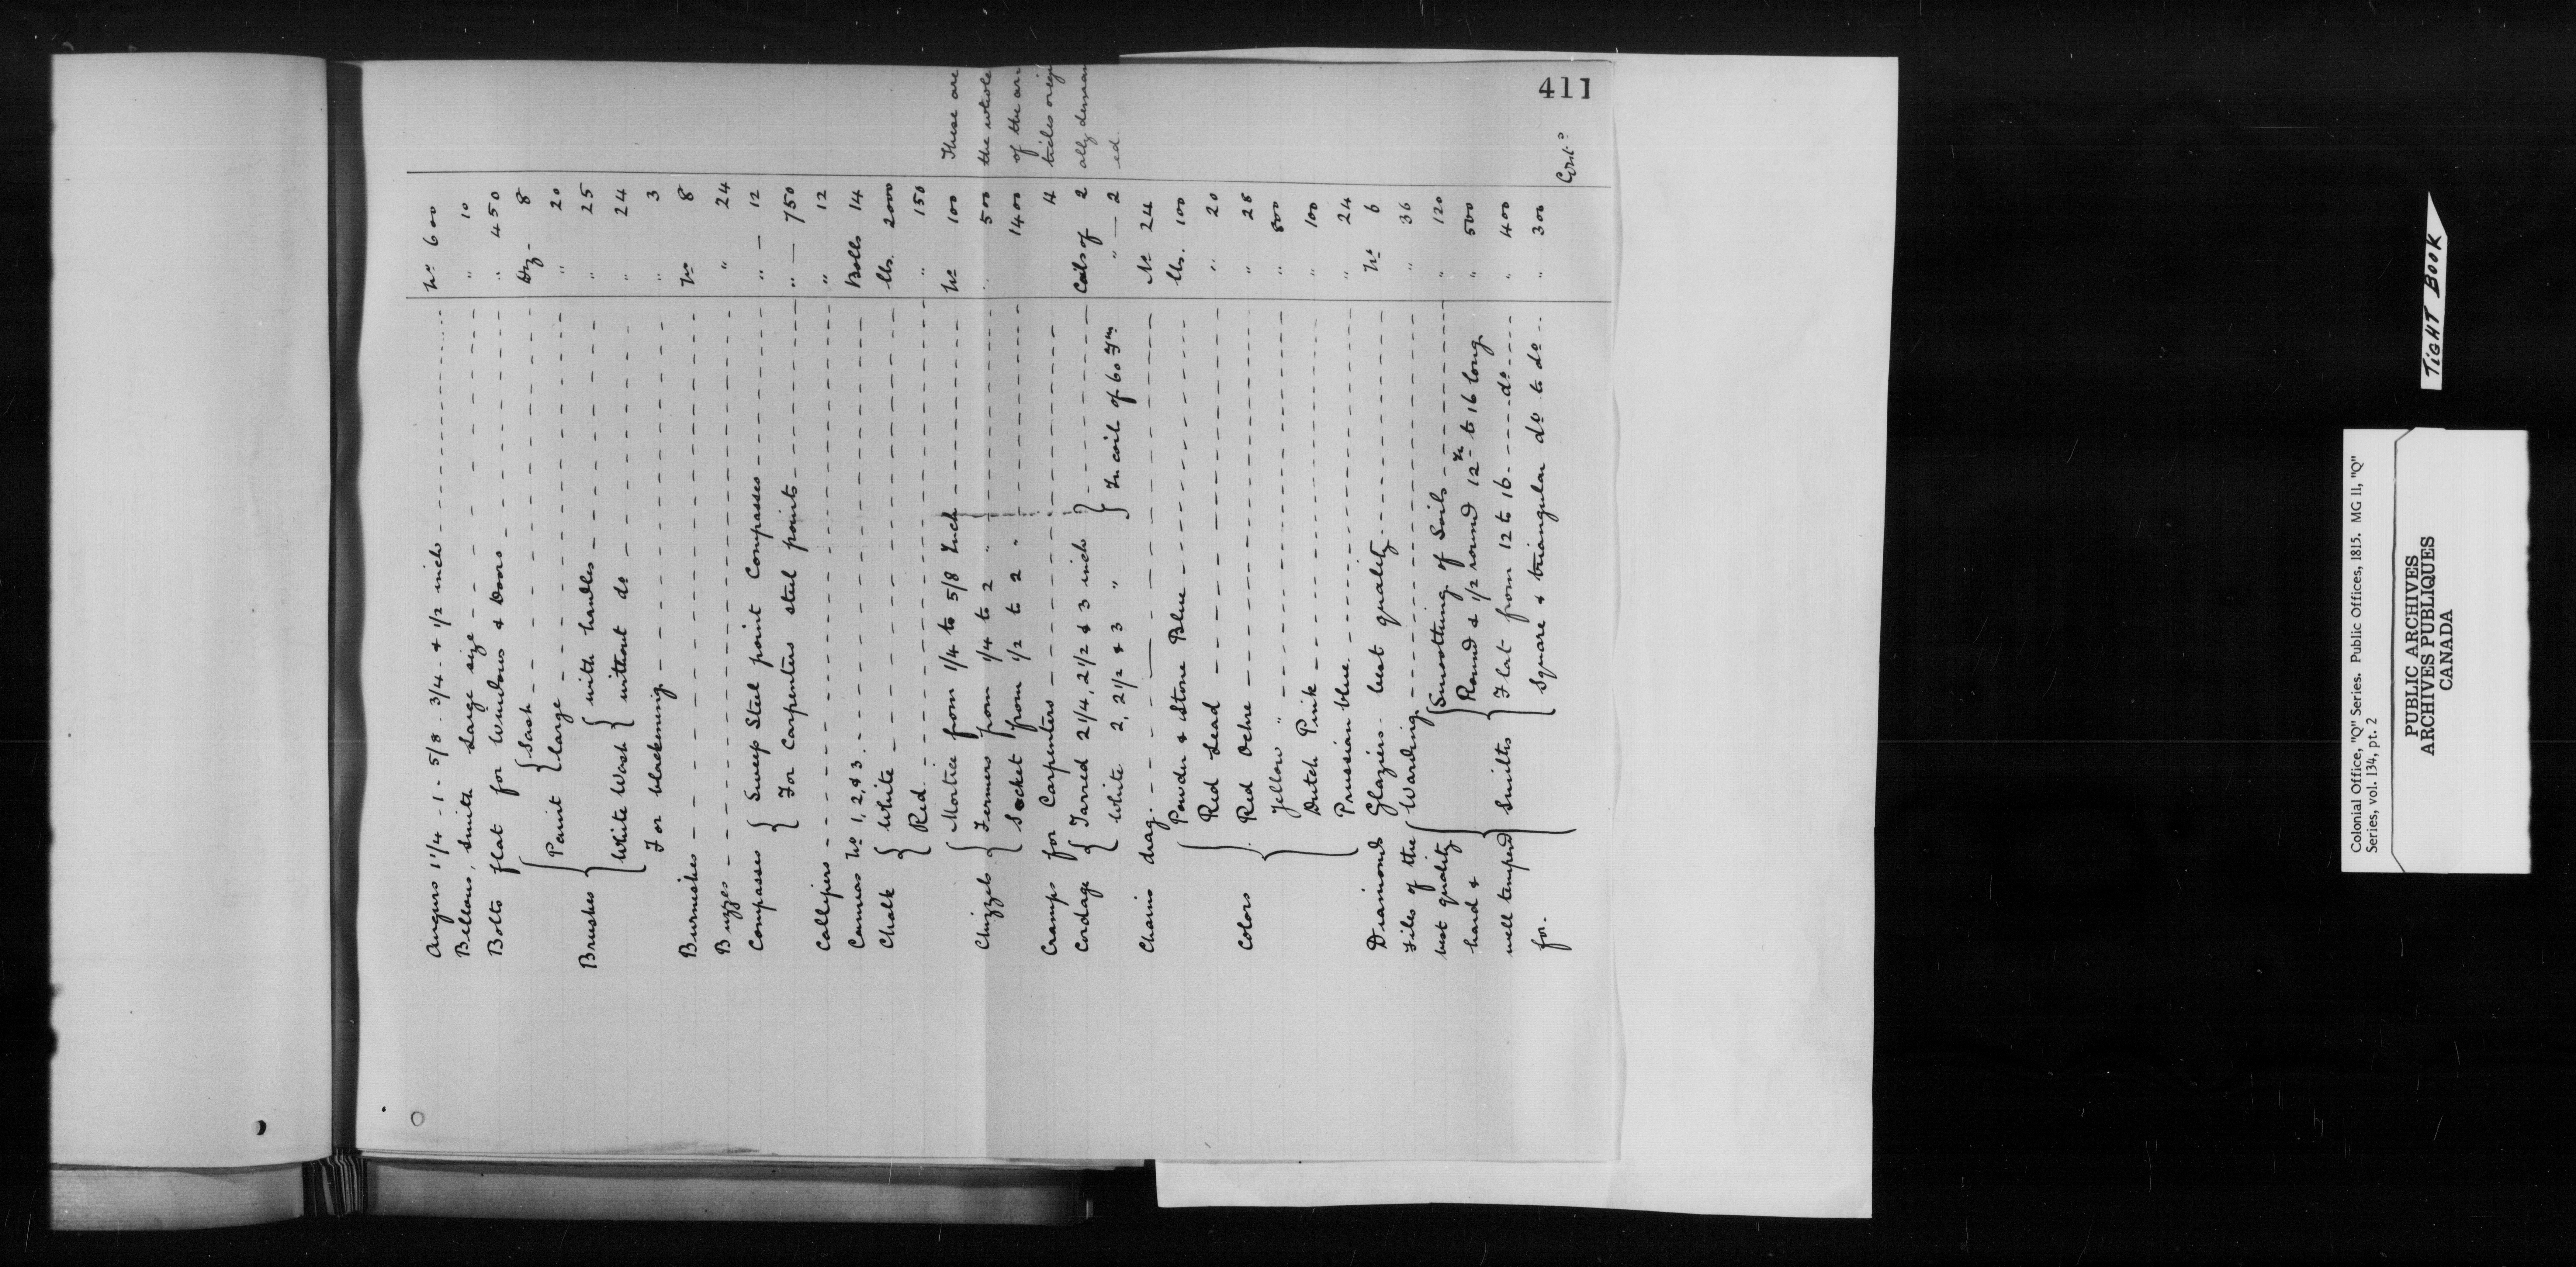 411
Augurs 1 1/4 - 1 - 5/8 . 3/4 . & 1/2 inch No 600
Bellows, Smith Large size " 10
Bolts flat for Windows & Doors " 450
Brushes { Paint { Sash Dz 8
large " 20
White Wash { with handles " 25
without do " 24
For blackening " 3
Burnishes No 8
Buzzes " 24
Compasses { Sweep Steel point Compasses " 12
For Carpenters steel points " 750
Callipers " 12
Canvas No 1, 2, & 3 Bolts 14
Chalk { White lbs. 2000
Red " 150
Chizzels { Mortice from 1/4 to 5/8 Inch No 100
Firmers from 1/4 to 2 " " 500
Socket from 1/2 to 2 " 1400
Cramps for Carpenters 4
Cordage { Tarred 2 1/4, 2 1/2 & 3 inch } Coils of 2
White 2, 2 1/2 & 3 " } In coil of 60 Fms " 2
Chains drag No 24
Colors { Powder & Stone Blue lbs. 100
Red Lead " 20
Red Ochre " 28
Yellow " " 800
Dutch Pink " 100
Prussian blue " 24
Diamonds Glaziers best quality No 6
Files of the { Warding " 36
best quality { Smoothing of Soils " 120
hard & Round & 1/2 round 12 In to 16 long " 500
well temperd Smiths { Flat from 12 to 16 do " 400
for. Square & triangular do to do " 300
These are
the whole
of the ar
ticles orig
ally deman
ed.
Cert.o
TIGHT BOOK
Colonial Office, "Q" Series. Public Offices, 1815. MG 11, "Q"
Series, vol. 134, pt. 2
PUBLIC ARCHIVES
ARCHIVES PUBLIQUES
CANADA